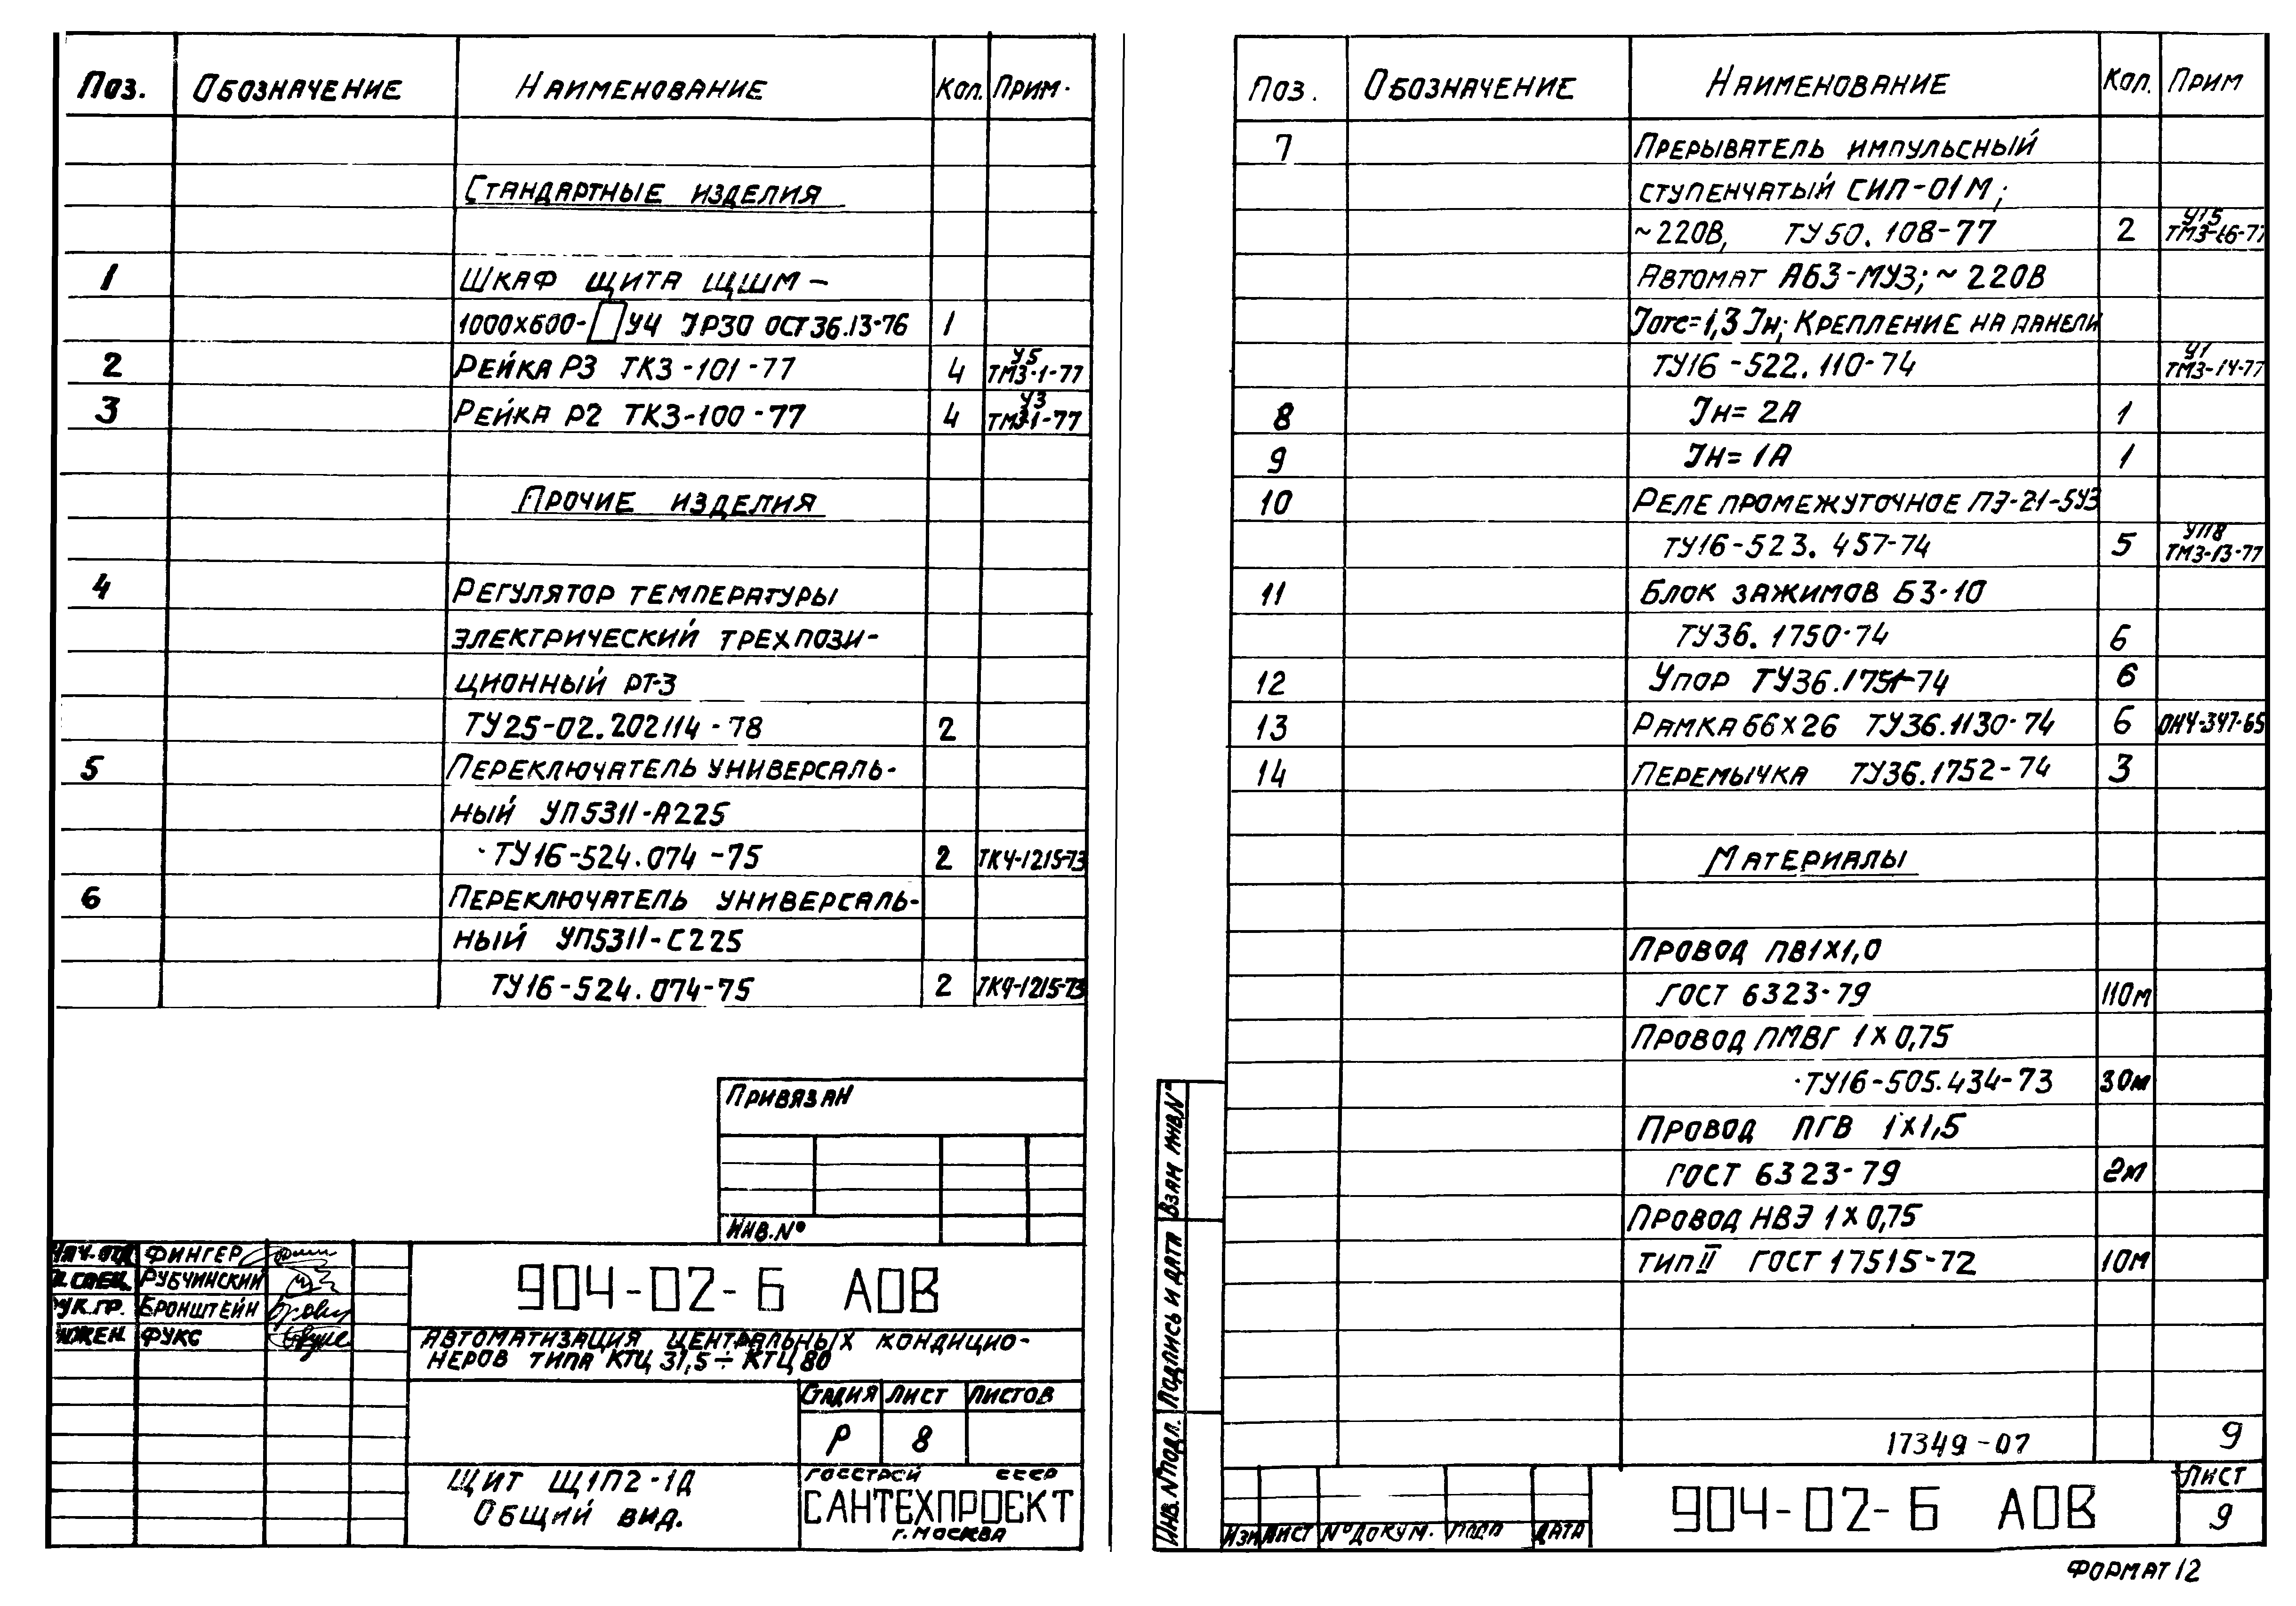 Поз. Обозначение Наименование Кол. Прим.
Стандартные изделия
1 Шкаф щита ЩШМ-
1000х600-□ У4 IP30 ОСТ36.13-76 1
У5
2 Рейка Р3 ТК3-101-77 4 ТМ3-1-77
У3
3 Рейка Р2 ТК3-100-77 4 ТМ3-1-77
Прочие изделия
4 Регулятор температуры
электрический трехпози-
ционный РТ-3
ТУ25-02.202114-78 2
5 Переключатель универсаль-
ный УП5311-А225
ТУ16-524.074-75 2 ТК4-1215-73
6 Переключатель универсаль-
ный УП5311-С225
ТУ16-524.074-75 2 ТК4-1215-73
Привязан
Инв.№
Нач.отд. Фингер
Гл.спец. Рубчинский
Рук.гр. Бронштейн
Инжен. Фукс
904-02-6 АОВ
Автоматизация центральных кондицио-
неров типа КТЦ 31,5÷КТЦ 80
Стадия Лист Листов
Р 8
Щит Щ1П2-1Д
Общий вид.
Госстрой СССР
САНТЕХПРОЕКТ
г. Москва
Поз. Обозначение Наименование Кол. Прим
7 Прерыватель импульсный
ступенчатый СИП-01М;
У15
~220В, ТУ50.108-77 2 ТМ3-16-77
Автомат АБ3-МУ3; ~220В
Iотс=1,3 Iн; Крепление на панели
У1
ТУ16-522.110-74 ТМ3-14-77
8 Iн=2А 1
9 Iн=1А 1
10 Реле промежуточное ПЭ-21-5У3
УП8
ТУ16-523.457-74 5 ТМ3-13-77
11 Блок зажимов БЗ-10
ТУ36.1750-74 6
12 Упор ТУ36.1751-74 6
13 Рамка 66х26 ТУ36.1130-74 6 ОН4-347-65
14 Перемычка ТУ36.1752-74 3
Материалы
Провод ПВ1х1,0
ГОСТ 6323-79 110м
Провод ПМВГ 1х0,75
ТУ16-505.434-73 30м
Провод ПГВ 1х1,5
ГОСТ 6323-79 2м
Провод НВЭ 1х0,75
тип II ГОСТ 17515-72 10м
17349-07 9
Взам инв.№
Подпись и дата
Инв.№подл.
Изм Лист №докум. Подп Дата
904-02-6 АОВ
Лист
9
Формат 12